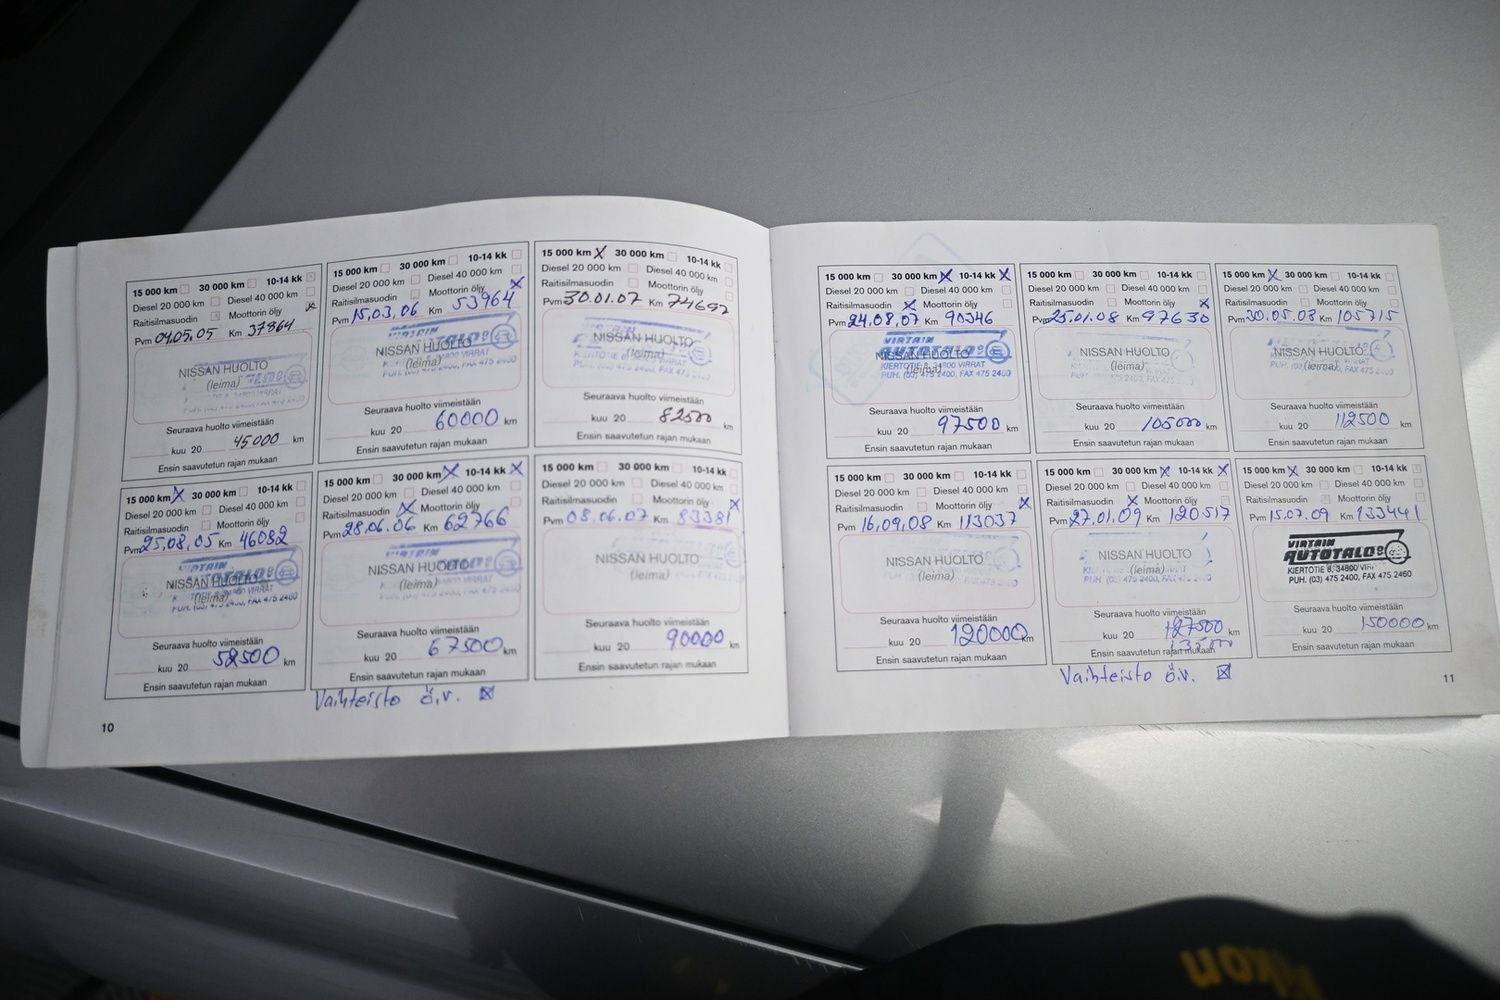 15 000 km 30 000 km 10-14 kk
Diesel 20 000 km Diesel 40 000 km
Raitisilmasuodin Moottorin öljy
Pvm 04.05.05 Km 37864
NISSAN HUOLTO
(leima)
Seuraava huolto viimeistään
kuu 20 45000 km
Ensin saavutetun rajan mukaan
15 000 km 30 000 km 10-14 kk
Diesel 20 000 km Diesel 40 000 km
Raitisilmasuodin Moottorin öljy
Pvm 15.03.06 Km 53964
VIRTAIN
AUTOTALO
NISSAN HUOLTO
(leima)
34800 VIRRAT
PUH. (03) 475 2400, FAX 475 2460
Seuraava huolto viimeistään
kuu 20 60000 km
Ensin saavutetun rajan mukaan
15 000 km X 30 000 km 10-14 kk
Diesel 20 000 km Diesel 40 000 km
Raitisilmasuodin Moottorin öljy
Pvm 30.01.07 Km 74697
NISSAN HUOLTO
(leima)
Seuraava huolto viimeistään
kuu 20 82500 km
Ensin saavutetun rajan mukaan
15 000 km X 30 000 km 10-14 kk
Diesel 20 000 km Diesel 40 000 km
Raitisilmasuodin Moottorin öljy
Pvm 25.08.05 Km 46082
VIRTAIN
AUTOTALO
NISSAN HUOLTO
(leima)
PUH. (03) 475 2400, FAX 475 2460
Seuraava huolto viimeistään
kuu 20 52500 km
Ensin saavutetun rajan mukaan
15 000 km 30 000 km X 10-14 kk X
Diesel 20 000 km Diesel 40 000 km
Raitisilmasuodin X Moottorin öljy
Pvm 28.06.06 Km 62766
VIRTAIN
AUTOTALO
NISSAN HUOLTO
(leima)
Seuraava huolto viimeistään
kuu 20 67500 km
Ensin saavutetun rajan mukaan
15 000 km 30 000 km 10-14 kk
Diesel 20 000 km Diesel 40 000 km
Raitisilmasuodin Moottorin öljy X
Pvm 08.06.07 Km 83381
NISSAN HUOLTO
(leima)
Seuraava huolto viimeistään
kuu 20 90000 km
Ensin saavutetun rajan mukaan
Vaihteisto ö.v. X
10
15 000 km 30 000 km X 10-14 kk X
Diesel 20 000 km Diesel 40 000 km
Raitisilmasuodin X Moottorin öljy
Pvm 24.08.07 Km 90346
VIRTAIN
AUTOTALO
NISSAN HUOLTO
(leima)
KIERTOTIE 8, 34800 VIRRAT
PUH. (03) 475 2400, FAX 475 2460
Seuraava huolto viimeistään
kuu 20 97500 km
Ensin saavutetun rajan mukaan
15 000 km 30 000 km 10-14 kk
Diesel 20 000 km Diesel 40 000 km
Raitisilmasuodin Moottorin öljy X
Pvm 25.01.08 Km 97630
NISSAN HUOLTO
(leima)
Seuraava huolto viimeistään
kuu 20 105000 km
Ensin saavutetun rajan mukaan
15 000 km X 30 000 km 10-14 kk
Diesel 20 000 km Diesel 40 000 km
Raitisilmasuodin Moottorin öljy
Pvm 30.05.08 Km 105715
NISSAN HUOLTO
(leima)
Seuraava huolto viimeistään
kuu 20 112500 km
Ensin saavutetun rajan mukaan
15 000 km 30 000 km 10-14 kk
Diesel 20 000 km Diesel 40 000 km
Raitisilmasuodin Moottorin öljy X
Pvm 16.09.08 Km 113037
NISSAN HUOLTO
(leima)
Seuraava huolto viimeistään
kuu 20 120000 km
Ensin saavutetun rajan mukaan
15 000 km 30 000 km X 10-14 kk X
Diesel 20 000 km Diesel 40 000 km
Raitisilmasuodin X Moottorin öljy
Pvm 27.01.09 Km 120517
NISSAN HUOLTO
(leima)
Seuraava huolto viimeistään
kuu 20 127500 km
Ensin saavutetun rajan mukaan
15 000 km X 30 000 km 10-14 kk
Diesel 20 000 km Diesel 40 000 km
Raitisilmasuodin Moottorin öljy
Pvm 15.07.09 Km 133441
VIRTAIN
AUTOTALO
KIERTOTIE 8, 34800
PUH. (03) 475 2400, FAX 475 2460
Seuraava huolto viimeistään
kuu 20 150000 km
Ensin saavutetun rajan mukaan
Vaihteisto ö.v. X
11